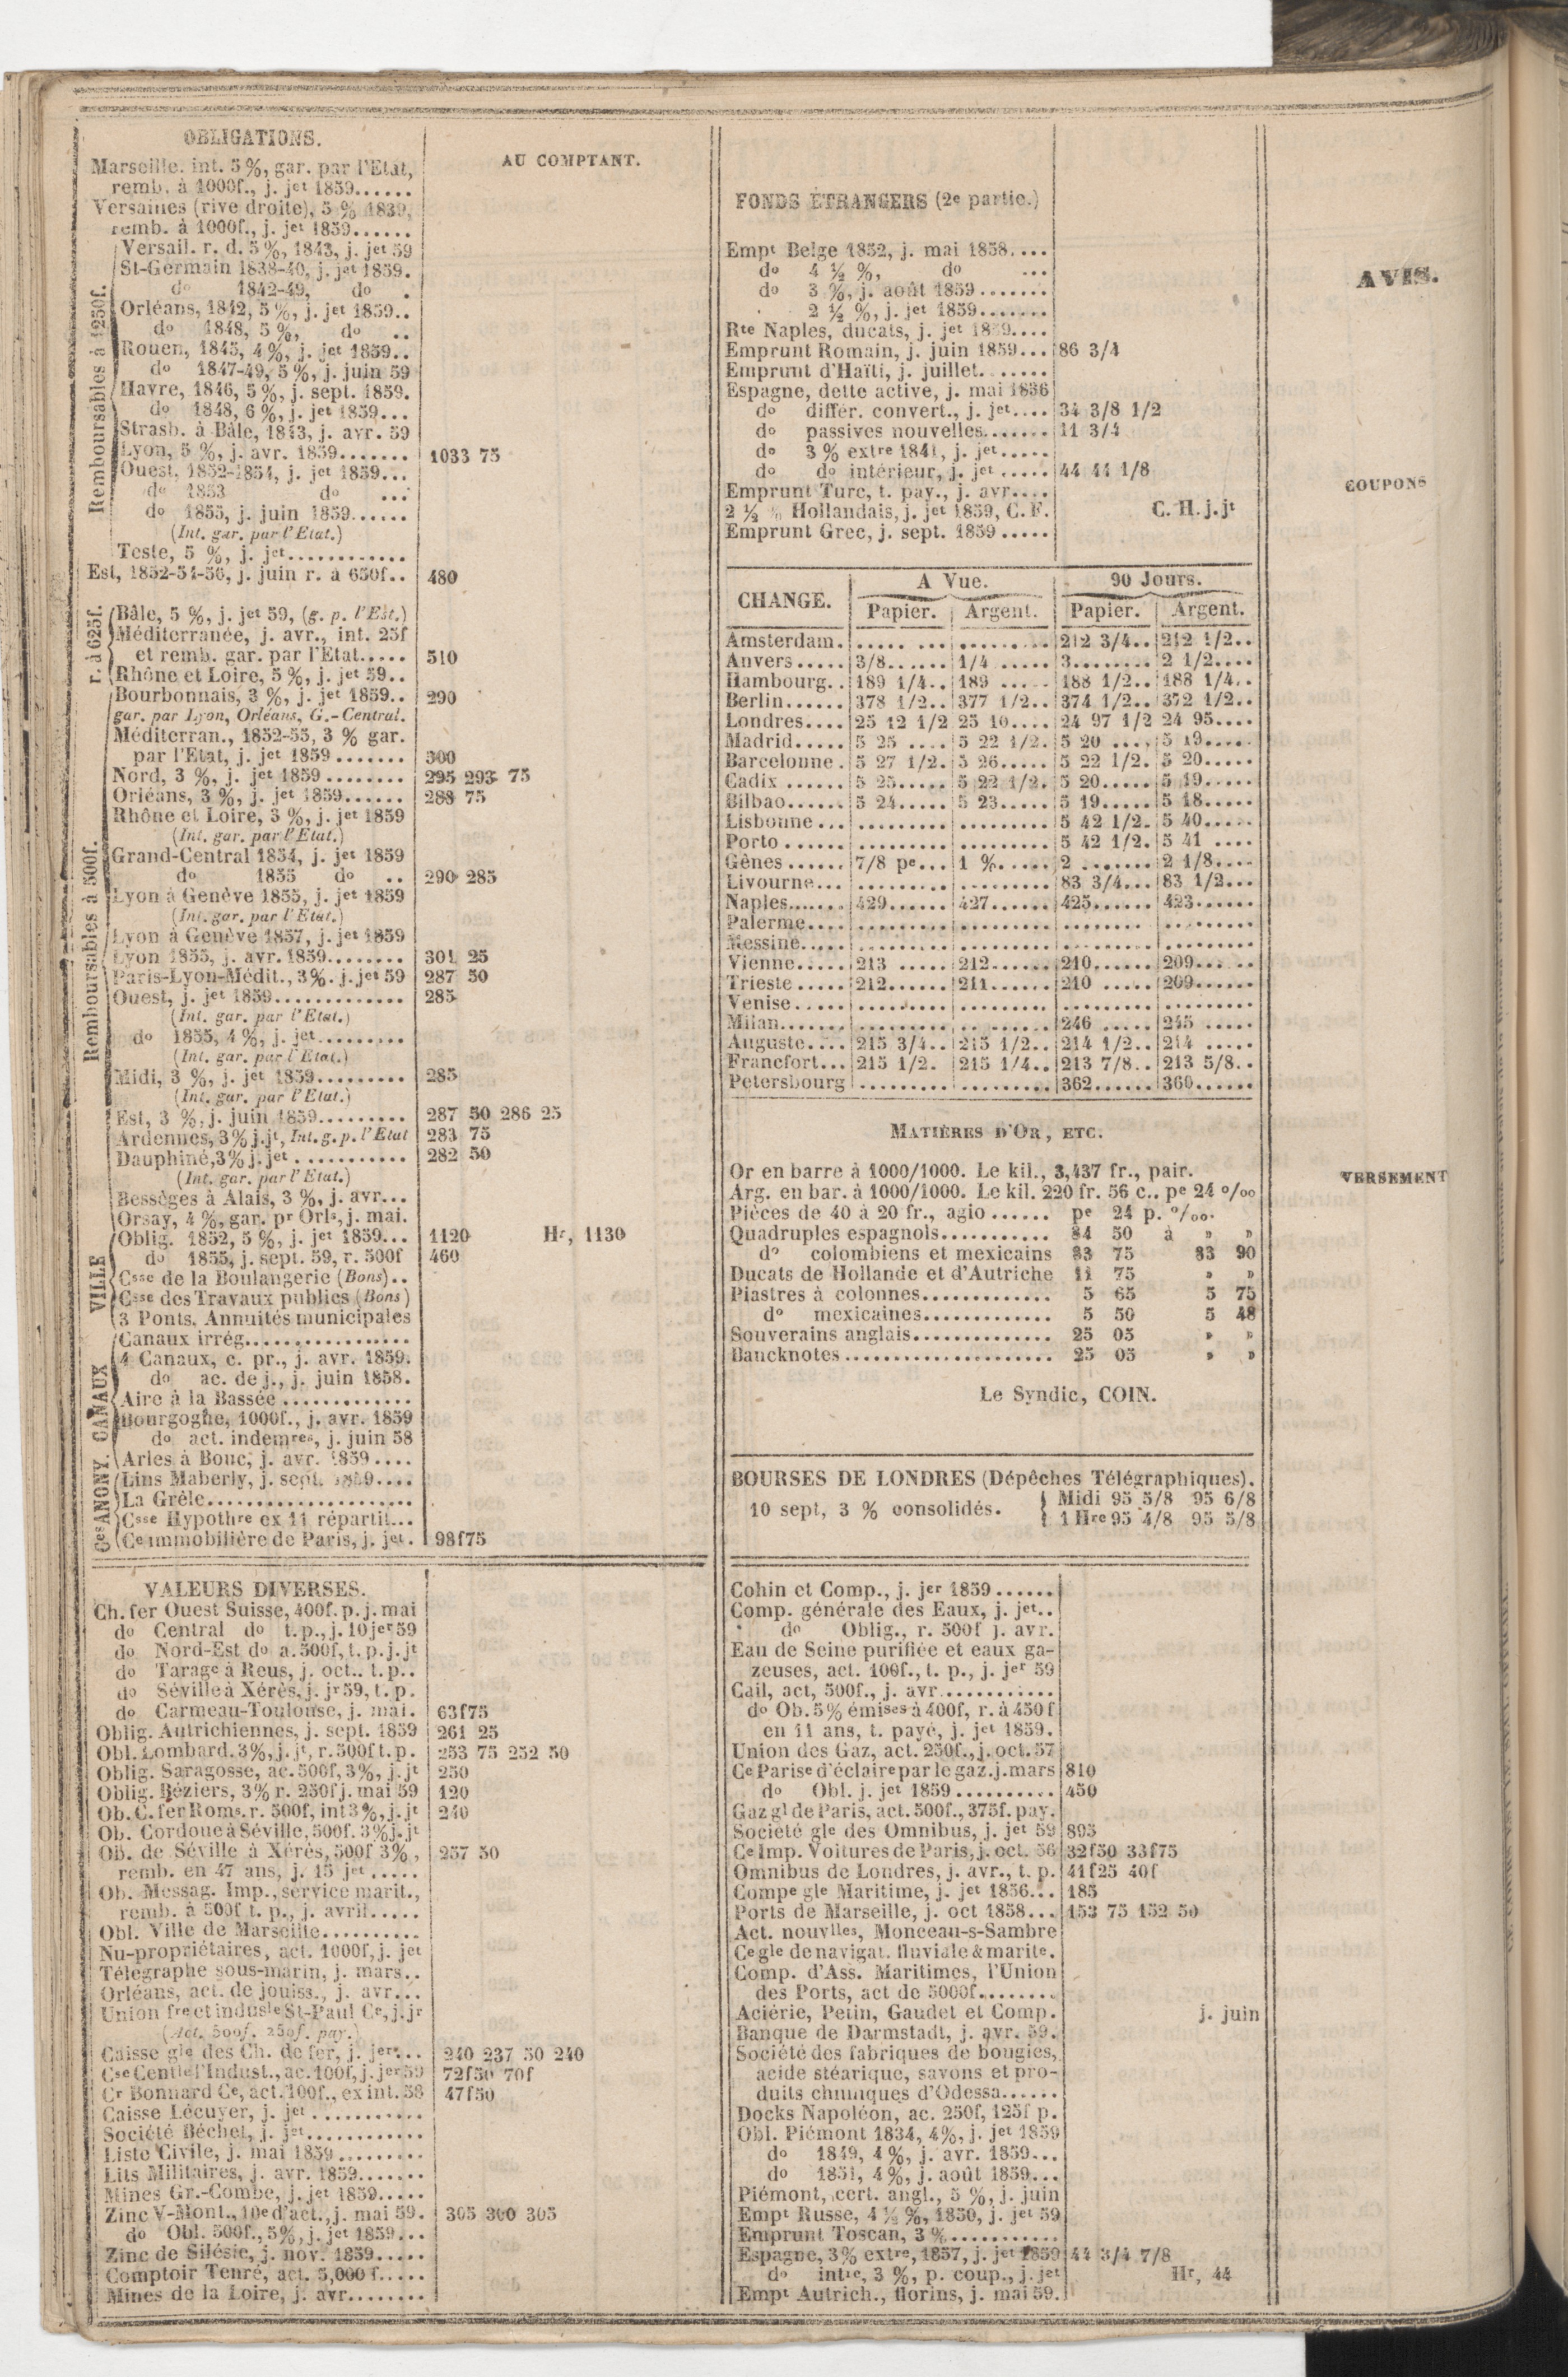 OBLIGATIONS.
AU COMPTANT.
Marseille. int. 5 %, gar. par l'Etat,
remb. à 1000f., j. jet 1859......
Versailles (rive droite), 5 % 1839,
remb. à 1000f., j. jet 1859......
Remboursables à 1250f.
Versail. r. d. 5 %, 1843, j. jet 59
St-Germain 1838-40, j. jet 1859.
do 1842-49, do .
Orléans, 1842, 5 %, j. jet 1859..
do 1848, 5 %, do ..
Rouen, 1845, 4 %, j. jet 1859..
do 1847-49, 5 %, j. juin 59
Havre, 1846, 5 %, j. sept. 1859.
do 1848, 6 %, j. jet 1859...
Strasb. à Bâle, 1843, j. avr. 59
Lyon, 5 %, j. avr. 1859....... 1033 75
Ouest, 1852-1854, j. jet 1859...
do 1853 do ...
do 1855, j. juin 1859......
(Int. gar. par l'Etat.)
Teste, 5 %, j. jet............
Est, 1852-54-56, j. juin r. à 650f.. 480
r. à 625f.
Bâle, 5 %, j. jet 59, (g. p. l'Est.)
Méditerranée, j. avr., int. 25f
et remb. gar. par l'Etat..... 510
Rhône et Loire, 5 %, j. jet 59..
Remboursables à 500f.
Bourbonnais, 3 %, j. jet 1859.. 290
gar. par Lyon, Orléans, G.-Central.
Méditerran., 1852-55, 3 % gar.
par l'Etat, j. jet 1859 ....... 300
Nord, 3 %, j. jet 1859 ........ 295 293 75
Orléans, 3 %, j. jet 1859...... 288 75
Rhône et Loire, 3 %, j. jet 1859
(Int. gar. par l'Etat.)
Grand-Central 1854, j. jet 1859
do 1855 do .. 290 285
Lyon à Genève 1855, j. jet 1859
(Int. gar. par l'Etat.)
Lyon à Genève 1857, j. jet 1859
Lyon 1855, j. avr. 1859........ 301 25
Paris-Lyon-Médit., 3 %. j. jet 59 287 50
Ouest, j. jet 1859............. 285
(Int. gar. par l'Etat.)
do 1855, 4 %, j. jet.........
(Int. gar. par l'Etat.)
Midi, 3 %, j. jet 1859......... 285
(Int. gar. par l'Etat.)
Est, 3 %, j. juin 1859......... 287 50 286 25
Ardennes, 3 % j. jt, Int. g. p. l'Etat 283 75
Dauphiné, 3 % j. jet ........... 282 50
(Int. gar. par l'Etat.)
Bessèges à Alais, 3 %, j. avr...
Orsay, 4 %, gar. pr Orls, j. mai.
VILLE
Oblig. 1852, 5 %, j. jet 1859... 1120 Hr, 1130
do 1855, j. sept. 59, r. 500f 460
Csse de la Boulangerie (Bons)..
Csse des Travaux publics (Bons)
3 Ponts, Annuités municipales
CANAUX
Canaux irrég.................
4 Canaux, c. pr., j. avr. 1859.
do ac. de j., j. juin 1858.
Aire à la Bassée .............
Bourgogne, 1000f., j. avr. 1859
do act. indemres, j. juin 58
Arles à Bouc, j. avr. 1859 ....
Ces ANONY.
Lins Maberly, j. sept. 1859....
La Grêle.....................
Csse Hypothre ex 11 répartit...
Ce immobilière de Paris, j. jet. 98f75
VALEURS DIVERSES.
Ch. fer Ouest Suisse, 400f. p. j. mai
do Central do t. p., j. 10 jer 59
do Nord-Est do a. 500f, t. p. j. jt
do Tarage à Reus, j. oct.. t. p..
do Séville à Xérès, j. jr 59, t. p.
do Carmeau-Toulouse, j. mai. 63f75
Oblig. Autrichiennes, j. sept. 1859 261 25
Obl. Lombard. 3%, j. jt, r. 500f t. p. 253 75 252 50
Oblig. Saragosse, ac. 500f, 3%, j. jt 250
Oblig. Béziers, 3% r. 250f j. mai 59 120
Ob. C. fer Roms. r. 500f, int 3%, j. jt 240
Ob. Cordoue à Séville, 500f. 3% j. jt
Ob. de Séville à Xérès, 500f 3%, 257 50
remb. en 47 ans, j. 15 jet .....
Ob. Messag. Imp., service marit.,
remb. à 500f t. p., j. avril.....
Obl. Ville de Marseille..........
Nu-propriétaires, act. 1000f, j. jet
Télégraphe sous-marin, j. mars..
Orléans, act. de jouiss., j. avr...
Union fre et indusle St-Paul Ce, j. jr
(Act. 500f. 250f. pay.)
Caisse gle des Ch. de fer, j. jer... 240 237 50 240
Cse Centle l'Indust., ac. 100f, j. jer 59 72f50 70f
Cr Bonnard Ce, act. 100f., ex int. 58 47f50
Caisse Lécuyer, j. jet ...........
Société Béchet, j. jet............
Liste Civile, j. mai 1859.........
Lits Militaires, j. avr. 1859.......
Mines Gr.-Combe, j. jet 1859.....
Zinc V-Mont., 10e d'act., j. mai 59. 305 300 305
do Obl. 500f., 5%, j. jet 1859...
Zinc de Silésie, j. nov. 1859.....
Comptoir Tenré, act. 5,000 f.....
Mines de la Loire, j. avr........
FONDS ÉTRANGERS (2e partie.)
Empt Belge 1852, j. mai 1858....
do 4 ½ %, do ...
do 3 %, j. août 1859.......
2 ½ %, j. jet 1859.......
Rte Naples, ducats, j. jet 1859....
Emprunt Romain, j. juin 1859... 86 3/4
Emprunt d'Haïti, j. juillet.......
Espagne, dette active, j. mai 1836
do différ. convert., j. jet.... 34 3/8 1/2
do passives nouvelles....... 11 3/4
do 3 % extre 1841, j. jet.....
do do intérieur, j. jet ..... 44 44 1/8
Emprunt Turc, t. pay., j. avr....
2 ½ % Hollandais, j. jet 1859, C. F. C. H. j. jt
Emprunt Grec, j. sept. 1859 .....
CHANGE. A Vue. 90 Jours.
Papier. Argent. Papier. Argent.
Amsterdam. ..... ... ......... 212 3/4.. 212 1/2..
Anvers..... 3/8...... 1/4 ..... 3........ 2 1/2....
Hambourg.. 189 1/4.. 189 ..... 188 1/2.. 188 1/4..
Berlin...... 378 1/2.. 377 1/2.. 374 1/2.. 372 1/2..
Londres.... 25 12 1/2 25 10.... 24 97 1/2 24 95....
Madrid..... 5 25 .... 5 22 1/2. 5 20 .... 5 19.....
Barcelonne. 5 27 1/2. 5 26..... 5 22 1/2. 5 20.....
Cadix ...... 5 25..... 5 22 1/2. 5 20..... 5 19.....
Bilbao...... 5 24..... 5 23..... 5 19..... 5 18.....
Lisbonne... ......... ......... 5 42 1/2. 5 40.....
Porto ...... ......... ......... 5 42 1/2. 5 41 ....
Gênes ...... 7/8 pe... 1 %..... 2 ....... 2 1/8....
Livourne... ......... ......... 83 3/4... 83 1/2...
Naples...... 429...... 427...... 425...... 423......
Palerme.... ......... ......... ......... .........
Messine..... ......... ......... ......... .........
Vienne..... 213 ..... 212...... 210...... 209......
Trieste ..... 212...... 211...... 210 ..... 209......
Venise..... ......... ......... ......... .........
Milan....... ......... ......... 246 ..... 245 .....
Auguste.... 215 3/4.. 215 1/2.. 214 1/2.. 214 .....
Francfort... 215 1/2. 215 1/4.. 213 7/8.. 213 5/8..
Petersbourg ......... ......... 362...... 360......
MATIÈRES D'OR, ETC.
Or en barre à 1000/1000. Le kil., 3,437 fr., pair.
Arg. en bar. à 1000/1000. Le kil. 220 fr. 56 c.. pe 24 o/oo
Pièces de 40 à 20 fr., agio ...... pe 24 p. o/oo.
Quadruples espagnols........... 84 50 à » »
do colombiens et mexicains 83 75 83 90
Ducats de Hollande et d'Autriche 11 75 » »
Piastres à colonnes............. 5 65 5 75
do mexicaines............. 5 50 5 48
Souverains anglais.............. 25 05 » »
Bancknotes..................... 25 05 » »
Le Syndic, COIN.
BOURSES DE LONDRES (Dépêches Télégraphiques).
10 sept, 3 % consolidés. Midi 95 5/8 95 6/8
1 Hre 95 4/8 95 5/8
Cohin et Comp., j. jer 1859......
Comp. générale des Eaux, j. jet..
do Oblig., r. 500f j. avr.
Eau de Seine purifiée et eaux ga-
zeuses, act. 100f., t. p., j. jer 59
Cail, act, 500f., j. avr...........
do Ob. 5% émises à 400f, r. à 450f
en 11 ans, t. payé, j. jet 1859.
Union des Gaz, act. 250f., j. oct. 57
Ce Parise d'éclaire par le gaz. j. mars 810
do Obl. j. jet 1859.......... 450
Gaz gl de Paris, act. 500f., 375f. pay.
Société gle des Omnibus, j. jet 59 895
Ce Imp. Voitures de Paris, j. oct. 56 32f50 33f75
Omnibus de Londres, j. avr., t. p. 41f25 40f
Compe gle Maritime, j. jet 1856... 185
Ports de Marseille, j. oct 1858... 153 75 152 50
Act. nouvlles, Monceau-s-Sambre
Ce gle de navigat. fluviale & marite.
Comp. d'Ass. Maritimes, l'Union
des Ports, act de 5000f........
Aciérie, Petin, Gaudet et Comp. j. juin
Banque de Darmstadt, j. avr. 59.
Société des fabriques de bougies,
acide stéarique, savons et pro-
duits chimiques d'Odessa......
Docks Napoléon, ac. 250f, 125f p.
Obl. Piémont 1834, 4%, j. jet 1859
do 1849, 4 %, j. avr. 1859...
do 1851, 4 %, j. août 1859...
Piémont, cert. angl., 5 %, j. juin
Empt Russe, 4 ½ %, 1850, j. jet 59
Emprunt Toscan, 3 %...........
Espagne, 3% extre, 1857, j. jet 1859 44 3/4 7/8
do intre, 3 %, p. coup., j. jet Hr, 44
Empt Autrich., florins, j. mai 59.
AVIS.
COUPONS
VERSEMENT